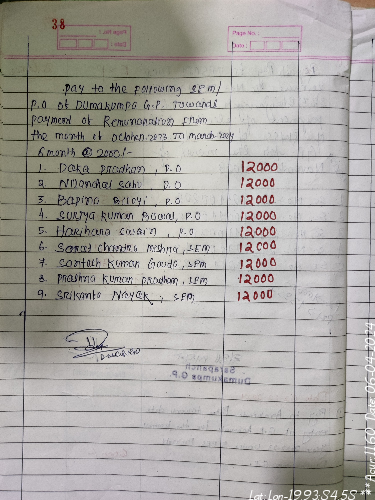 38
Page No.:
Date:
pay to the following SPM/
P.O of Dumakumpa G.P. Towards
payment of Remuneration from
the month of october.2023 To march-2024
6 month @ 2000/-
1. Daka pradhan, P.O 12000
2. Nilanchal sahu P.O 12000
3. Bapina P.O 12000
4. Surya kumar P.O 12000
5. Harihara swain, P.O 12000
6. Sarat chandra Mishra, SPM 12000
7. Santosh Kumar Gouda, SPM 12000
8. prashna kumar pradhan, SPM 12000
9. Srikanta Nayak, SPM 12000
Sarapanch
Dumakumpa G.P.
Date 06-04-2024
Lat:Lon-19.93:84.55